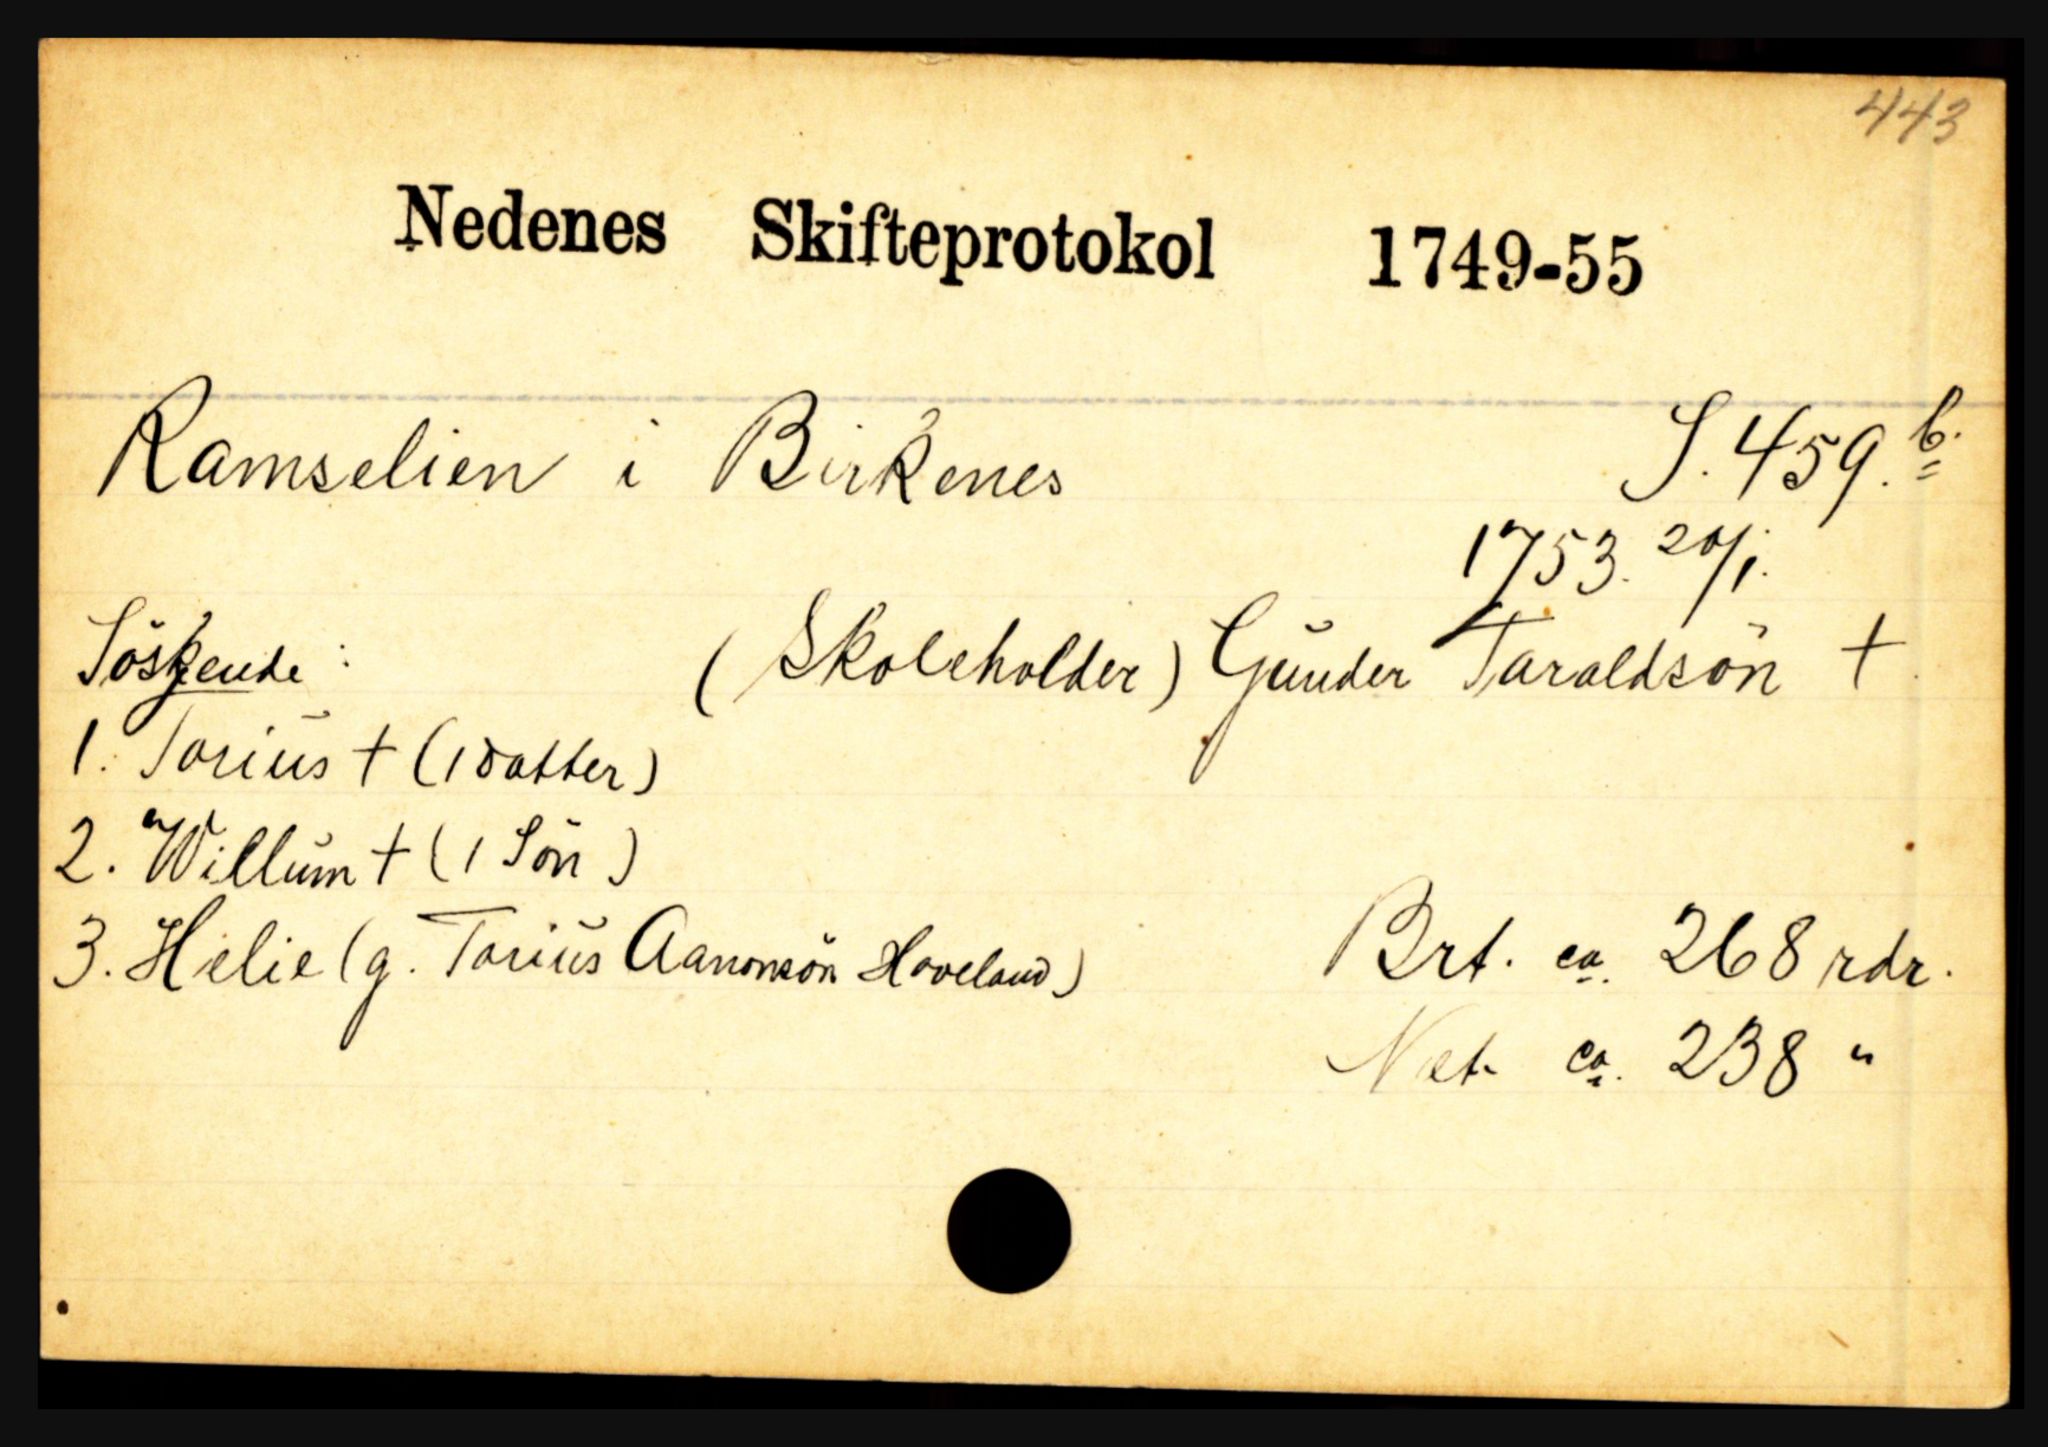 443
Nedenes Skifteprotokol 1749-55
Ramselien i Birkenes S. 459.b.
1753. 20/1.
Söskende: (Skoleholder) Gunder Taraldsön †
1. Torius † (1 datter)
2. Willum † (1 Sön)
3. Helie (g. Torius Aanonsön Hoveland) Brt. ca. 268 rdr.
Net. ca. 238 "